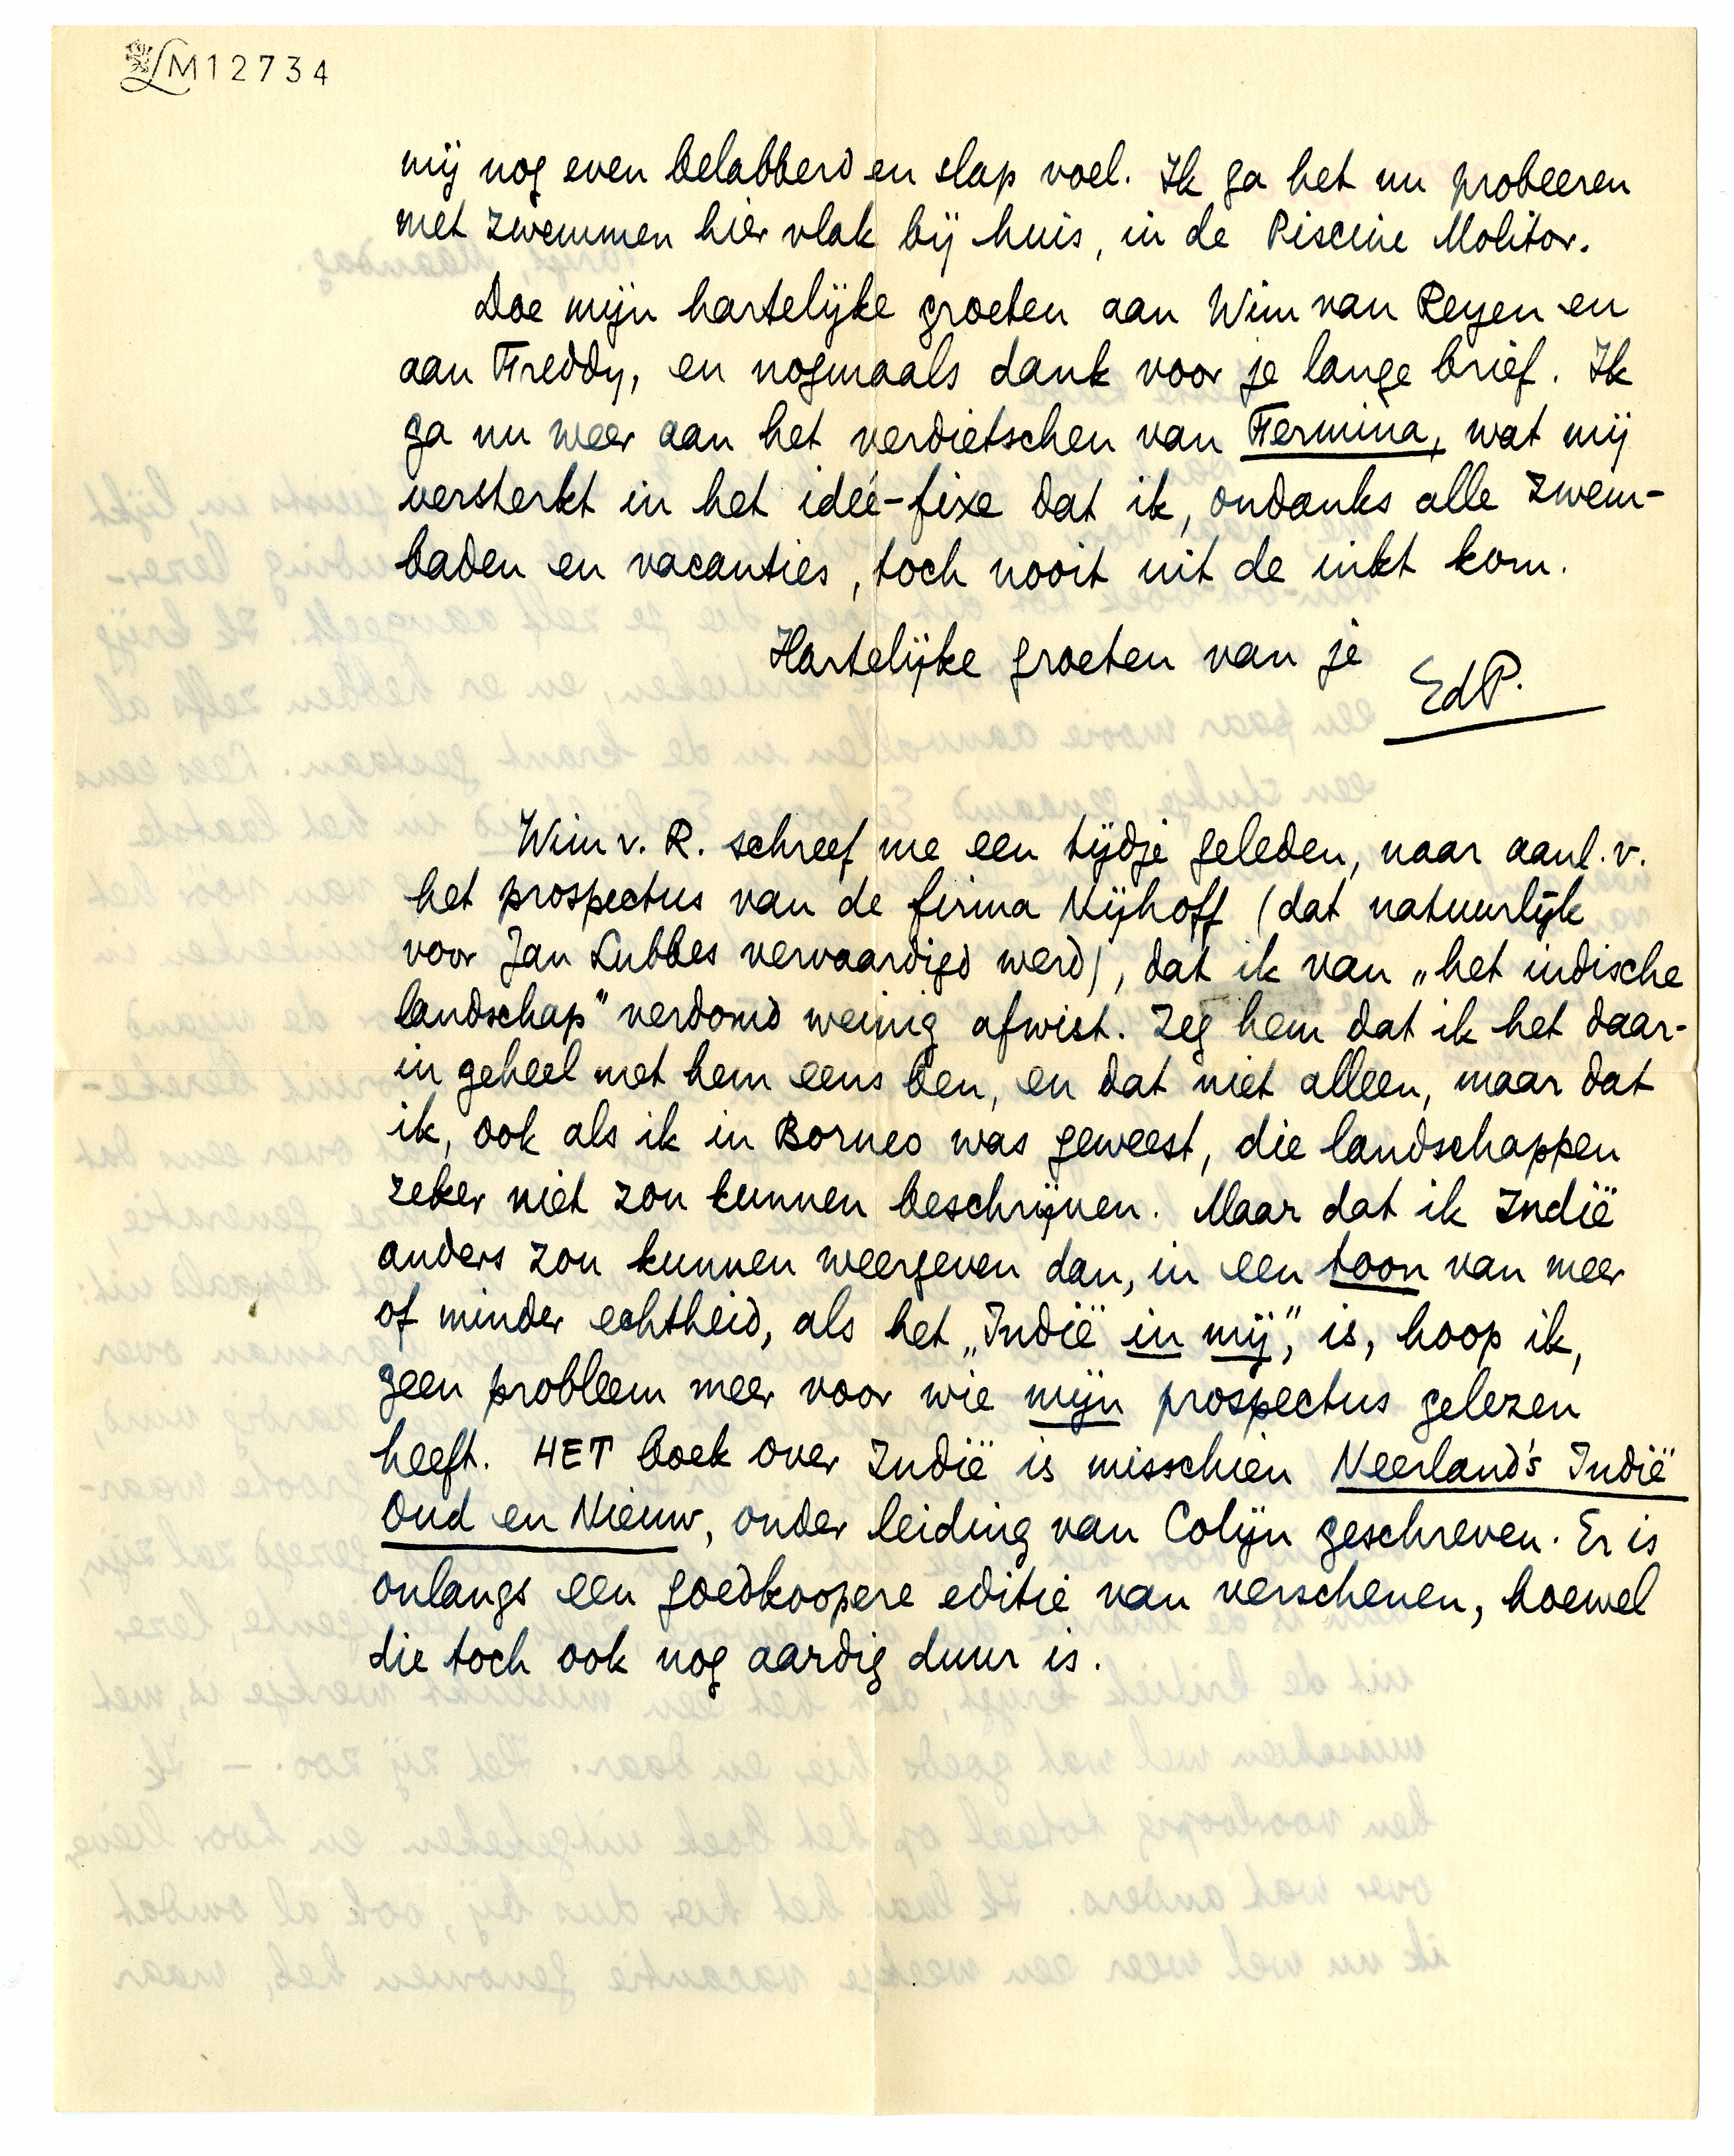 LM12734
mij nog even belabberd en slap voel. Ik ga het nu probeeren
met zwemmen hier vlak bij huis, in de Piscine Molitor.
Doe mijn hartelijke groeten aan Wim van Reyen en
aan Freddy, en nogmaals dank voor je lange brief. Ik
ga nu weer aan het verdietschen van Fermina, wat mij
versterkt in het ideé-fixe dat ik, ondanks alle zwem-
baden en vacanties, toch nooit uit de inkt kom.
Hartelijke groeten van je
EdP.
Wim v. R. schreef me een tijdje geleden, naar aanl. v.
het prospectus van de firma Nijhoff (dat natuurlijk
voor Jan Lubbes vervaardigd werd), dat ik van „het indische
landschap" verdomd weinig afwist. Zeg hem dat ik het daar-
in geheel met hem eens ben, en dat niet alleen, maar dat
ik, ook als ik in Borneo was geweest, die landschappen
zeker niet zou kunnen beschrijven. Maar dat ik Indië
anders zou kunnen weergeven dan, in een toon van meer
of minder echtheid, als het „Indië in mij", is, hoop ik,
geen probleem meer voor wie mijn prospectus gelezen
heeft. HET boek over Indië is misschien Neerland's Indië
Oud en Nieuw, onder leiding van Colijn geschreven. Er is
onlangs een goedkoopere editie van verschenen, hoewel
die toch ook nog aardig duur is.